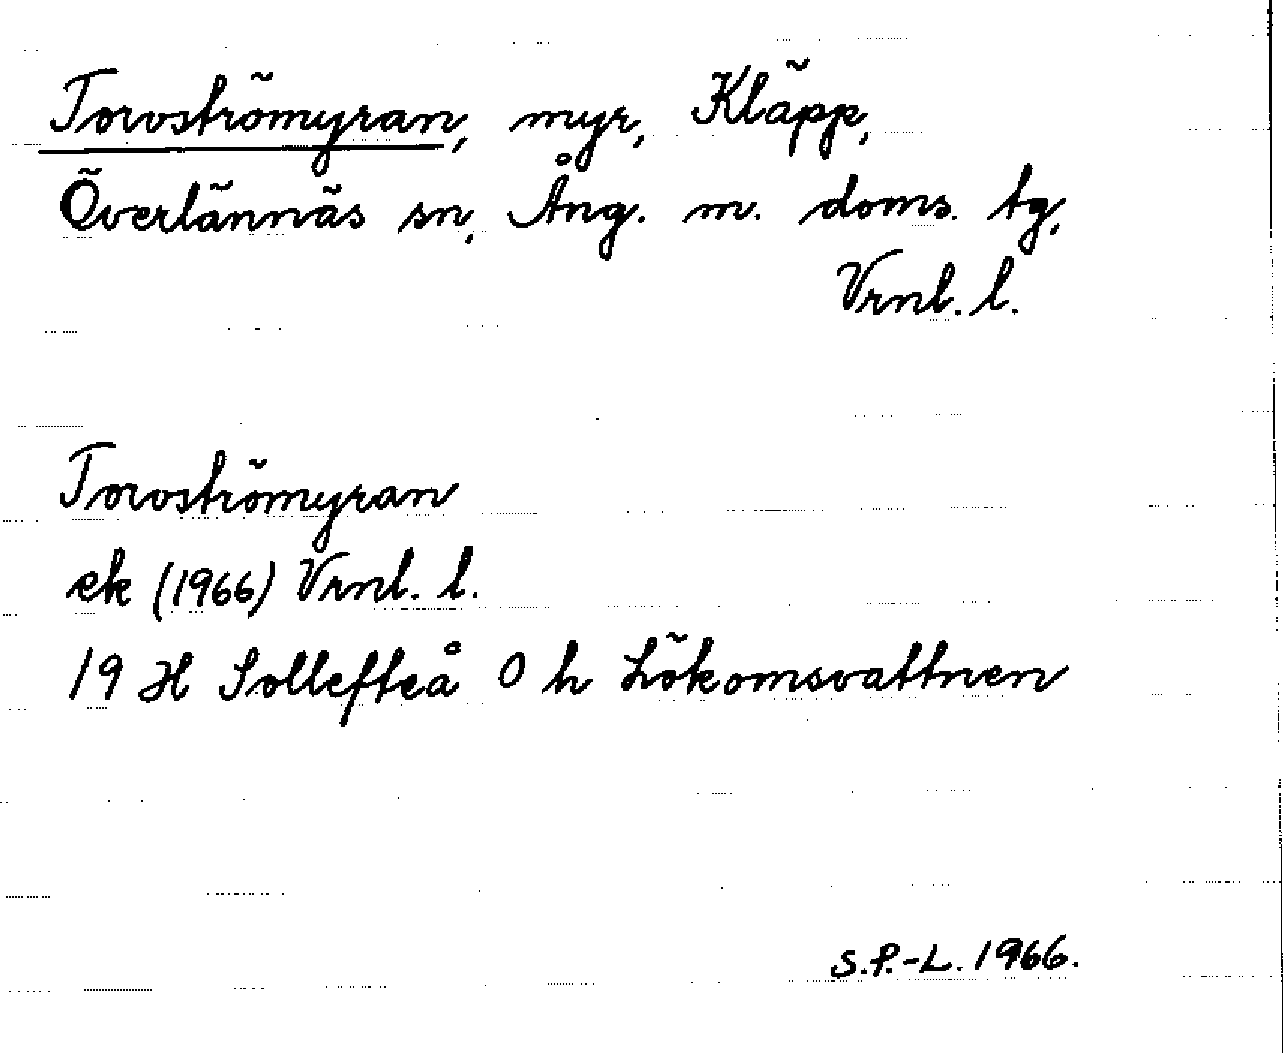 Torvströmyran, myr, Kläpp,
Överlännäs sn, Ång. m. doms. tg,
Vrnl. l.
Torvströmyran
ek (1966) Vrnl. l.
19 H Sollefteå 0 h Lökomsvattnen
S.P.-L. 1966.